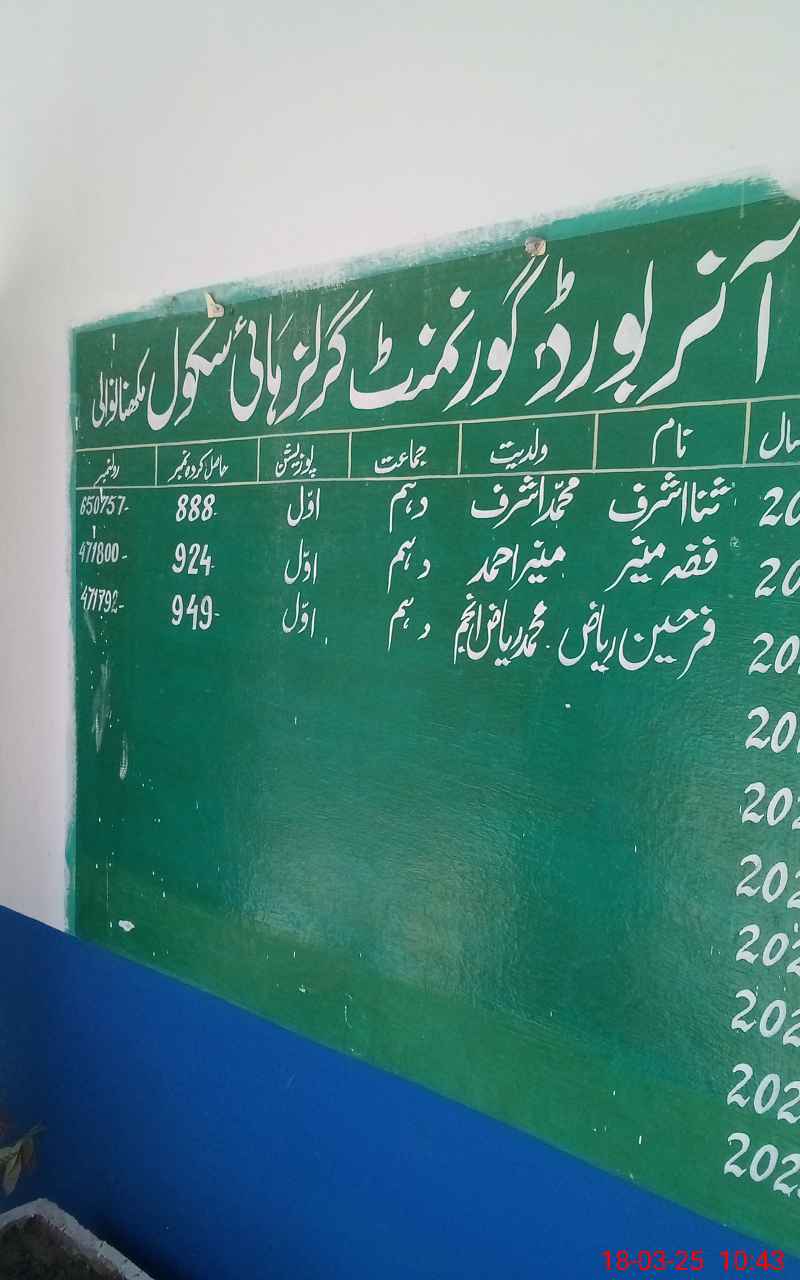 آنر بورڈ گورنمنٹ گرلز ہائی سکول مکھنانوالی
سال نام ولدیت جماعت پوزیشن حاصل کردہ نمبر رولنمبر
20 ثنا اشرف محمد اشرف دہم اوّل 888 650757
20 فضہ منیر منیر احمد دہم اوّل 924 471800
20 فرحین ریاض محمد ریاض انجم دہم اوّل 949 471792
20
202
202
202
202
202
202
18-03-25 10:43